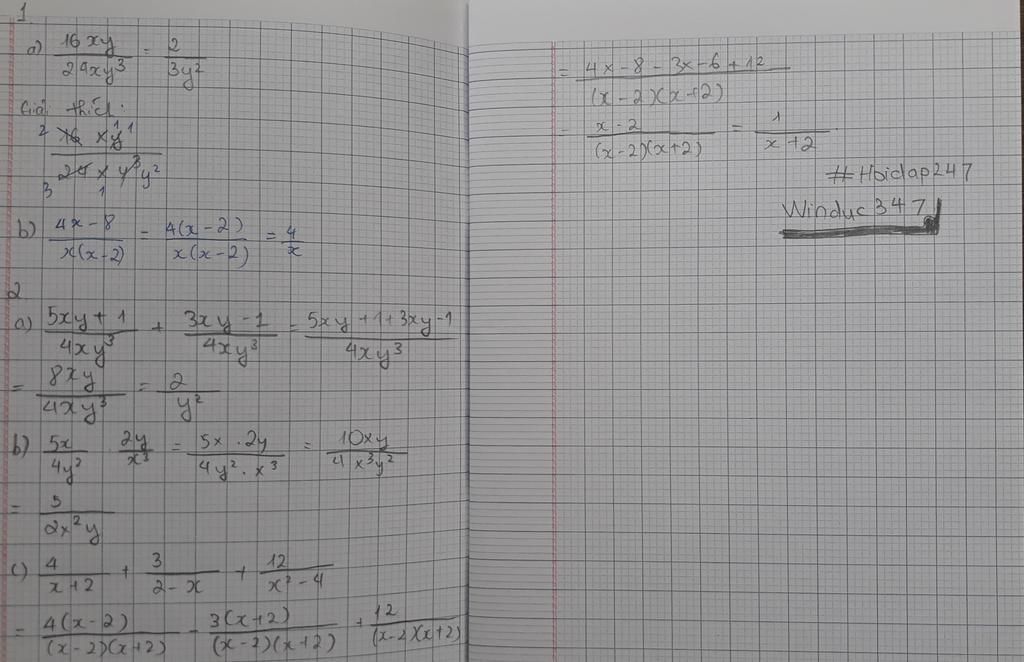 1
a) 16xy/24xy³ = 2/3y²
Giải thích:
2 16 xy 1 1
24 x y³ y²
3 1
b) 4x-8/x(x-2) = 4(x-2)/x(x-2) = 4/x
2
a) 5xy+1/4xy³ + 3xy-1/4xy³ = 5xy+1+3xy-1/4xy³
= 8xy/4xy³ = 2/y²
b) 5x/4y² . 2y/x³ = 5x.2y/4y².x³ = 10xy/4x³y²
= 5/2x²y
c) 4/x+2 + 3/2-x + 12/x²-4
= 4(x-2)/(x-2)(x+2) - 3(x+2)/(x-2)(x+2) + 12/(x-2)(x+2)
= 4x-8-3x-6+12/(x-2)(x+2)
= x-2/(x-2)(x+2) = 1/x+2
#Hoidap247
Winduc347